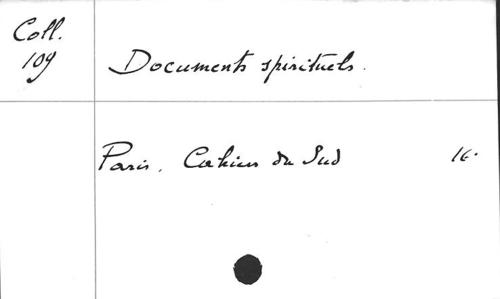 Coll.
109
Documents spirituels.
Paris, Cahiers du Sud 16.